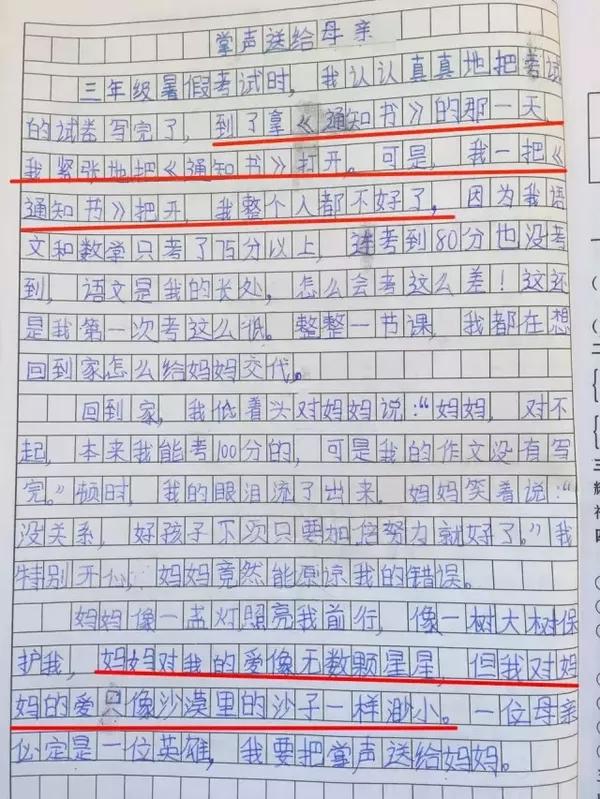 掌声送给母亲
三年级暑假考试时，我认认真真地把考试
的试卷写完了，到了拿《通知书》的那一天，
我紧张地把《通知书》打开。可是，我一把《
通知书》把开，我整个人都不好了，因为我语
文和数学只考了75分以上，连考到80分也没考
到，语文是我的长处，怎么会考这么差！这还
是我第一次考这么低。整整一节课，我都在想
回到家怎么给妈妈交代。
回到家，我低着头对妈妈说：“妈妈，对不
起，本来我能考100分的，可是我的作文没有写
完。”顿时，我的眼泪流了出来。妈妈笑着说：“
没关系，好孩子下次只要加倍努力就好了。”我
特别开心，妈妈竟然能原谅我的错误。
妈妈像一盏灯照亮我前行，像一树大树保
护我，妈妈对我的爱像无数颗星星，但我对妈
妈的爱只像沙漠里的沙子一样渺小。一位母亲
必定是一位英雄，我要把掌声送给妈妈。
一
(
(
二
三
四